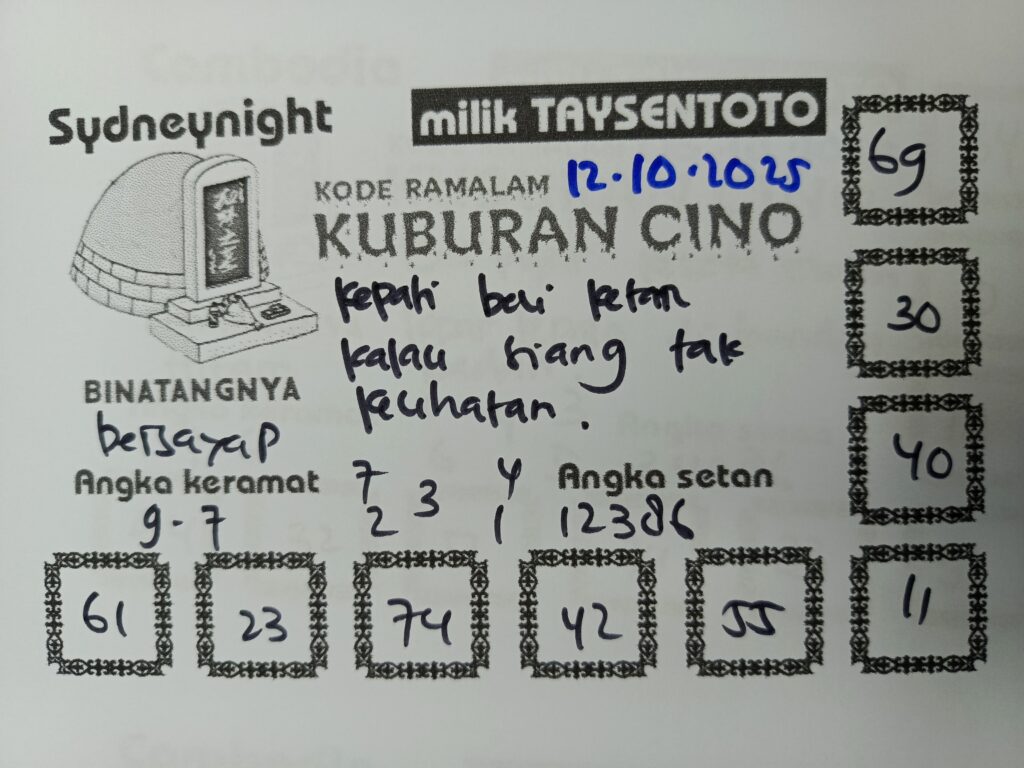 Sydneynight
milik TAYSENTOTO
KODE RAMALAM 12.10.2025
KUBURAN CINO
kepati beli ketan
kalau siang tak
kelihatan.
BINATANGNYA
bersayap
Angka keramat
9-7
7 4
3
2 1
Angka setan
12386
69
30
40
11
61 23 74 42 55